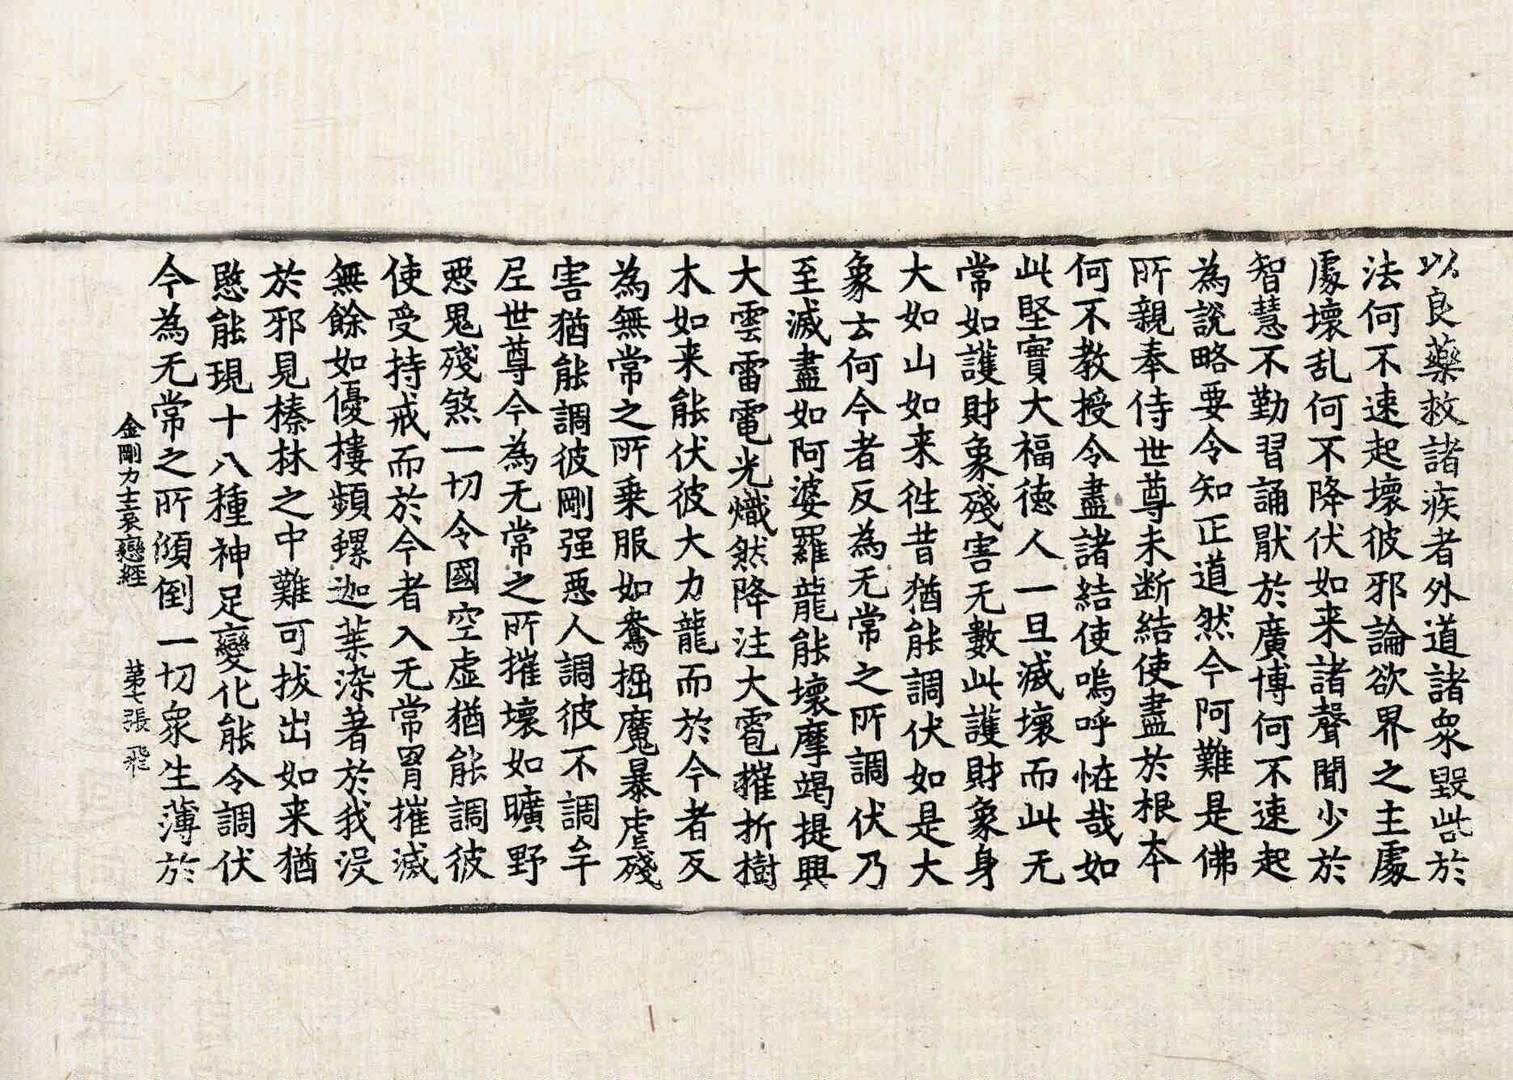 以良藥救諸疾者外道諸衆毀呰於
法何不速起壞彼邪論欲界之主處
處壞乱何不降伏如来諸聲聞少於
智慧不勤習誦猒於廣博何不速起
為說略要令知正道然今阿難是佛
所親奉侍世尊未断結使盡於根本
何不教授令盡諸結使嗚呼怪哉如
此堅實大福德人一旦滅壞而此无
常如護財象殘害无數此護財象身
大如山如来徃昔猶能調伏如是大
象云何今者反為无常之所調伏乃
至滅盡如阿婆羅龍能壞摩竭提興
大雲雷電光熾然降注大雹摧折樹
木如来能伏彼大力龍而於今者反
為無常之所乗服如鴦掘魔暴虐殘
害猶能調彼剛强惡人調彼不調牟
尼世尊今為无常之所摧壞如曠野
惡鬼殘煞一切令國空虛猶能調彼
使受持戒而於今者入无常胃摧滅
無餘如優樓頻螺迦葉染著於我沒
於邪見榛林之中難可拔出如来猶
愍能現十八種神足變化能令調伏
今為无常之所傾倒一切衆生薄於
金剛力士哀戀經 第七張 飛